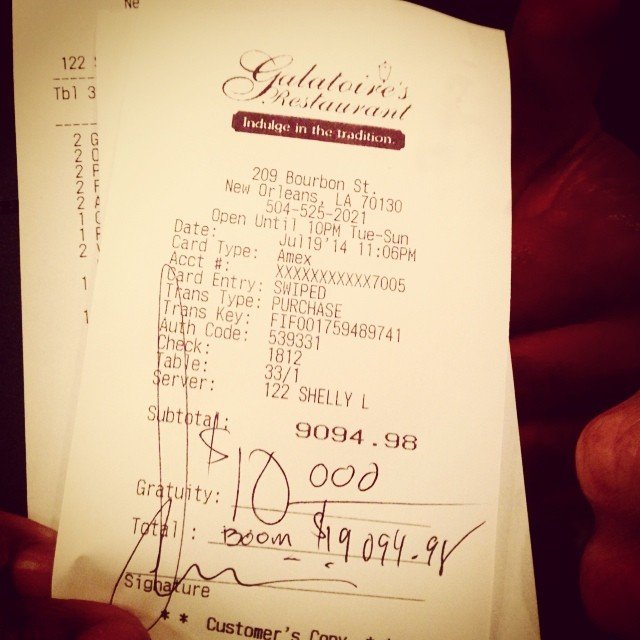 Ne
122
Tbl 3
2 G
2
2
2
2
1
1
2
1
1
Galatoire's
Restaurant
Indulge in the tradition.
209 Bourbon St.
New Orleans, LA 70130
504-525-2021
Open Until 10PM Tue-Sun
Date: Jul19'14 11:06PM
Card Type: Amex
Acct #: XXXXXXXXXXX7005
Card Entry: SWIPED
Trans Type: PURCHASE
Trans Key: FIF001759489741
Auth Code: 539331
Check: 1812
Table: 33/1
Server: 122 SHELLY L
Subtotal: 9094.98
Gratuity: $10 000
Total: BOOM $19 094.98
Signature
* * Customer's Copy *